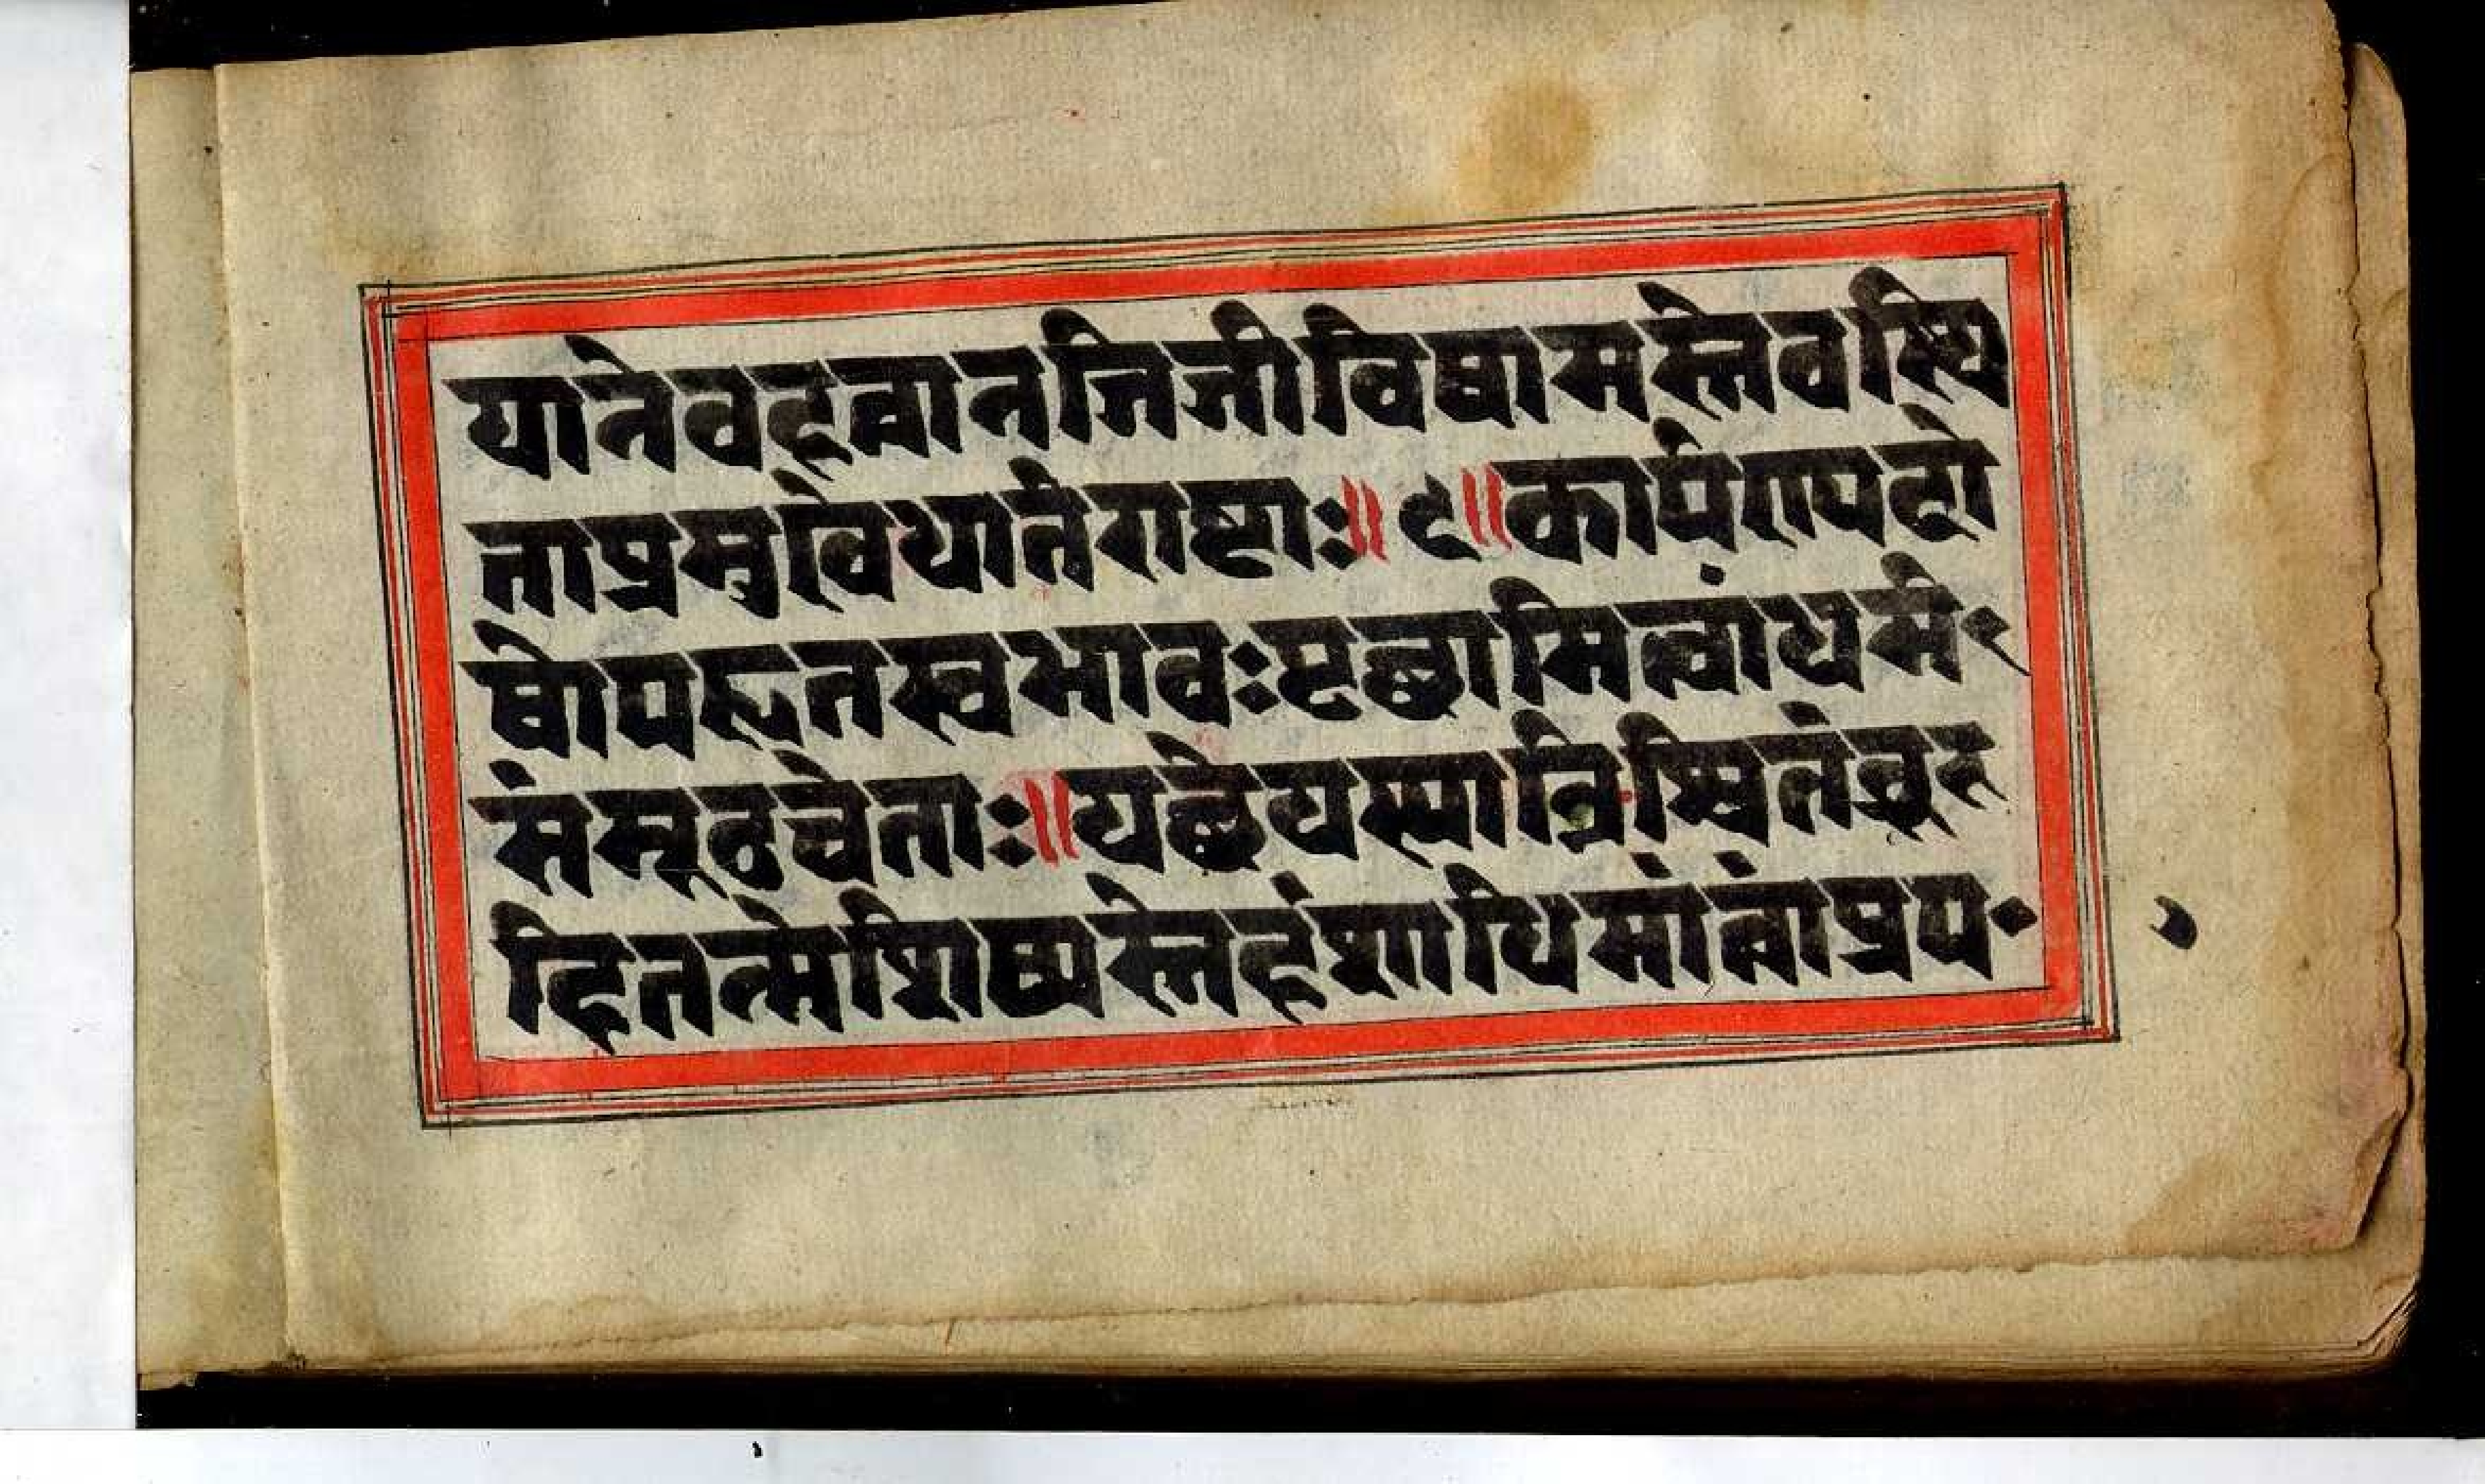 यानेवहत्वानजिजीविषामस्तेवस्थि
ताप्रमुखेधार्तराष्ट्राः॥ ९॥कार्पण्यदो
षोपहतस्वभावःपृछामित्वांधर्म
संमूढचेताः॥यछ्रेयस्यान्निश्चितंब्रू
हितन्मेशिष्यस्तेहंशाधिमांत्वांप्रप